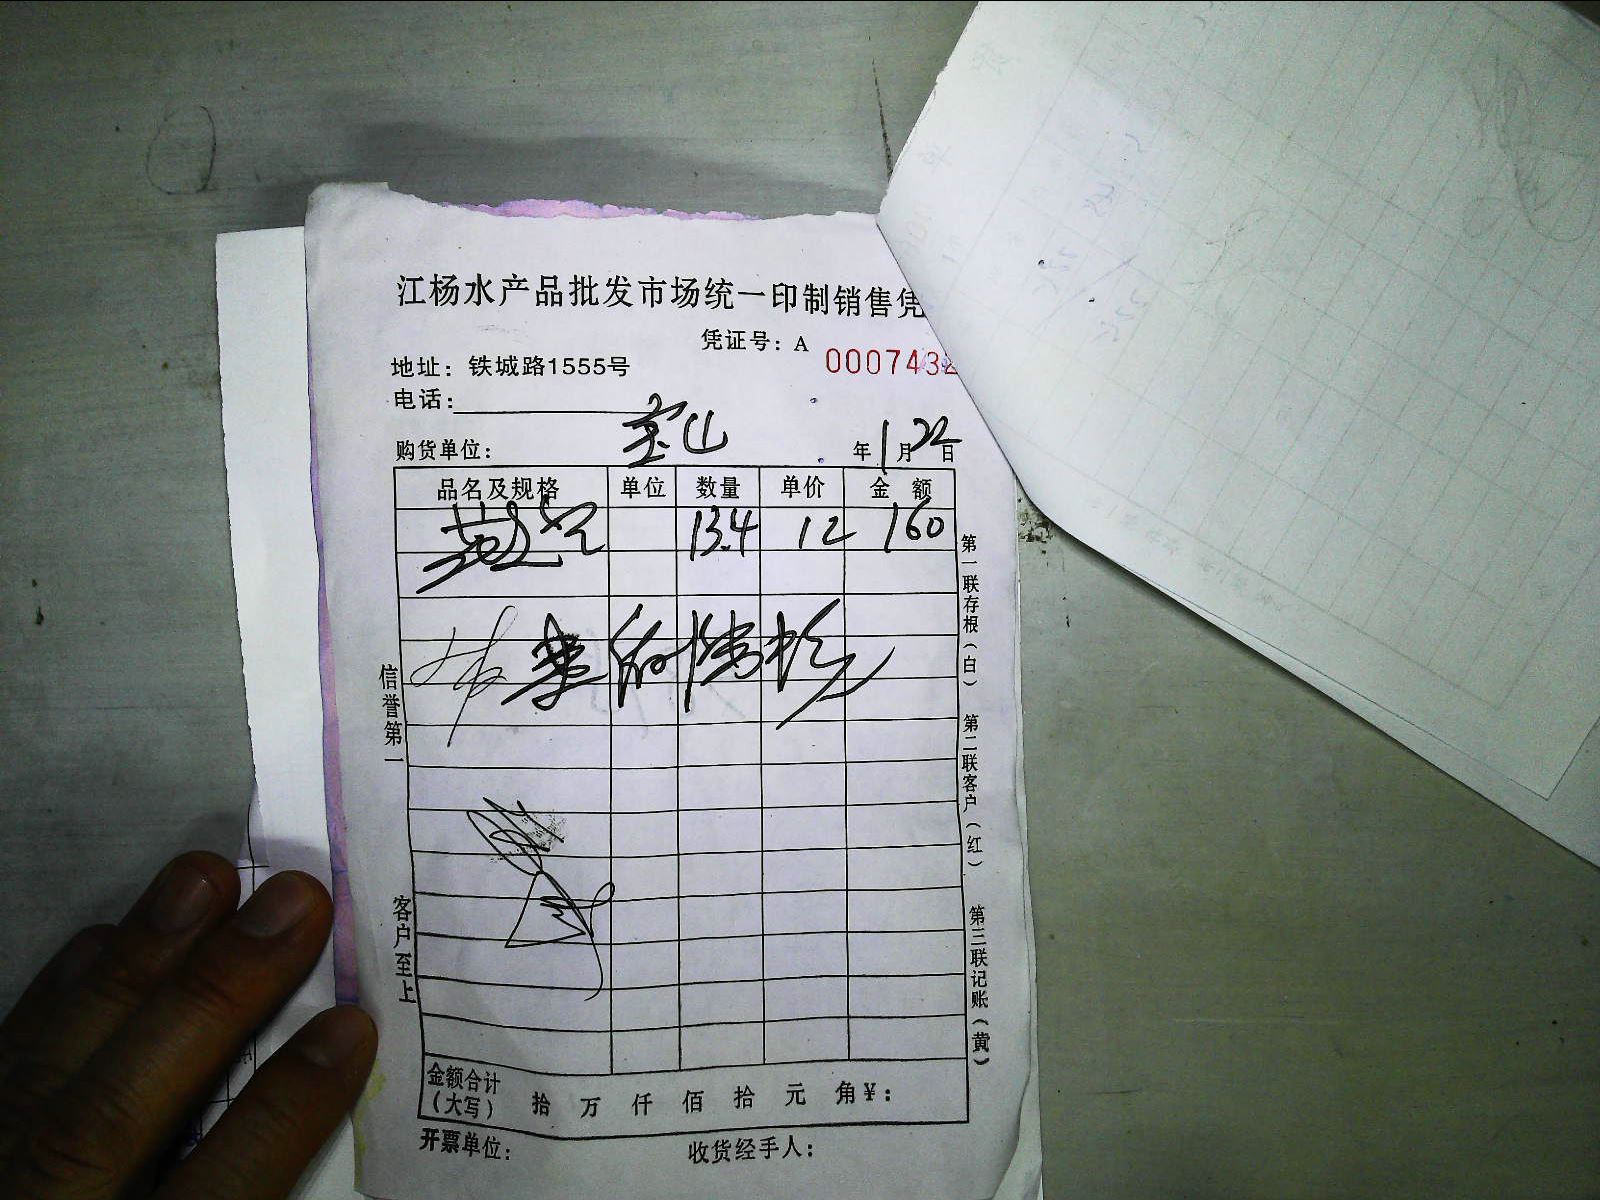 江杨水产品批发市场统一印制销售凭
凭证号：A 0007432
地址：铁城路1555号
电话：
购货单位： 宝山 年1月22日
品名及规格 单位 数量 单价 金额
13.4 12 160
信誉第一
客户至上
第一联存根（白）
第二联客户（红）
第三联记账（黄）
金额合计（大写） 拾 万 仟 佰 拾 元 角￥：
开票单位： 收货经手人：